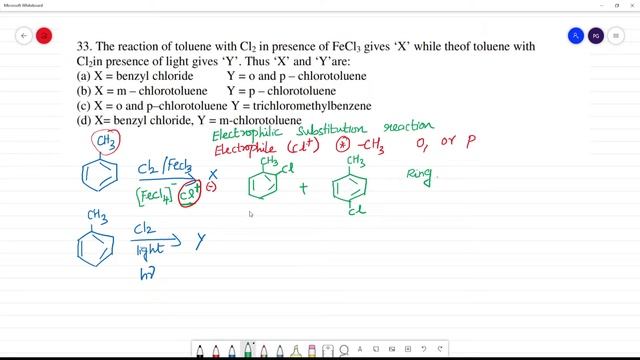 Microsoft Whiteboard
33. The reaction of toluene with Cl2 in presence of FeCl3 gives 'X' while theof toluene with
Cl2in presence of light gives 'Y'. Thus 'X' and 'Y'are:
(a) X = benzyl chloride Y = o and p – chlorotoluene
(b) X = m – chlorotoluene Y = p – chlorotoluene
(c) X = o and p–chlorotoluene Y = trichloromethylbenzene
(d) X= benzyl chloride, Y = m-chlorotoluene
Electrophilic Substitution reaction
Electrophile (Cl+) (*) -CH3 O, or P
CH3 Cl2/FeCl3 X
[FeCl4]- Cl+ (-)
CH3 Cl + CH3 Cl Ring
CH3 Cl2 light Y
hν
PG